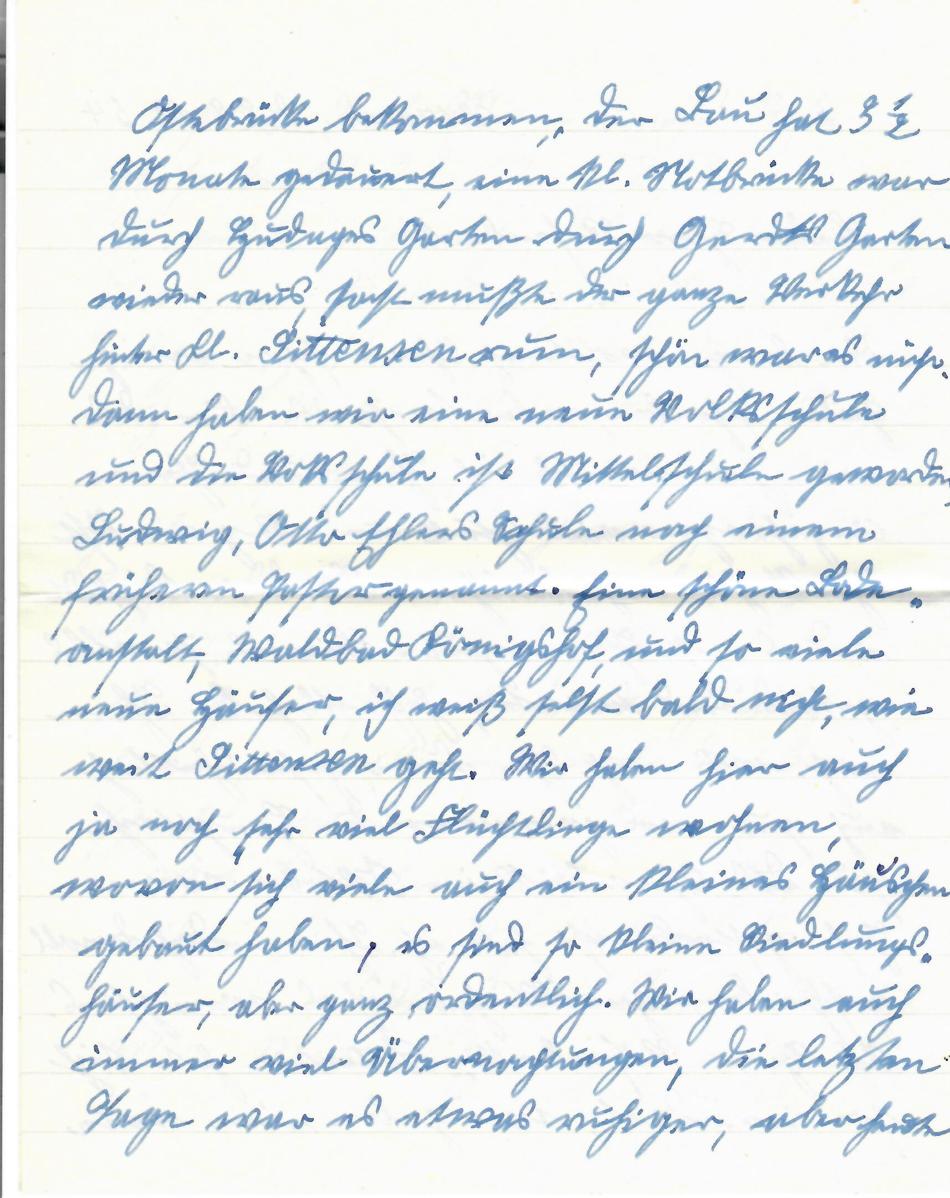 Ostebrücke bekommen, der Bau hat 3 1/2
Monate gedauert, eine kl. Notbrücke war
durch Gerdts Garten
wieder raus, sonst mußte der ganze Verkehr
hinter Kl. Sittensen rum, schön war es nich.
Dann haben wir eine neue Volksschule
und die Volksschule ist Mittelschule geworden
Ludwig, Otto Ehlers Schule nach einem
frühern Pastor genannt. Eine schöne Bade„
anstalt, Waldbad Königshof, und so viele
neue Häuser, ich weiß selbst bald nicht, wie
weit Sittensen geht. Wir haben hier auch
ja noch sehr viel Flüchtlinge wohnen,
wovon sich viele auch ein kleines Häuschen
gebaut haben, es sind so kleine Siedlungs„
häuser, aber ganz ordentlich. Wir haben auch
immer viel Übernachtungen, die letzten
Tage war es etwas ruhiger, aber heute